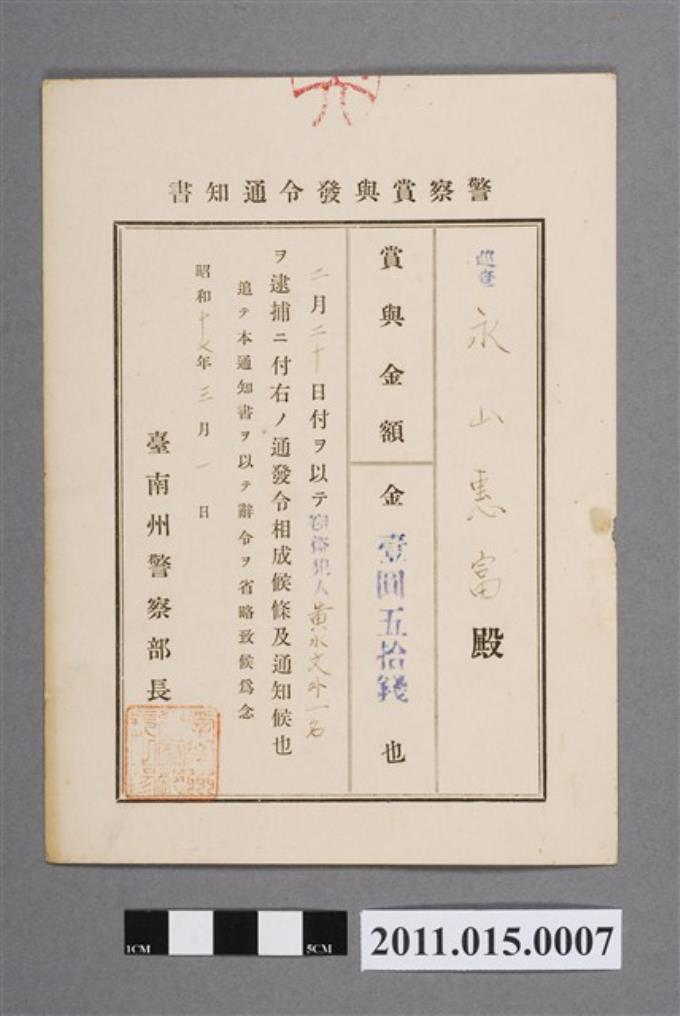 警察賞與發令通知書
巡查 永山惠富 殿
賞與金額 金 壹圓五拾錢 也
二月二十日付ヲ以テ竊盜犯人黃永文外一名
ヲ逮捕ニ付右ノ通發令相成候條及通知候也
追テ本通知書ヲ以テ辭令ヲ省略致候爲念
昭和十七年三月一日
臺南州警察部長
1CM
5CM
2011.015.0007